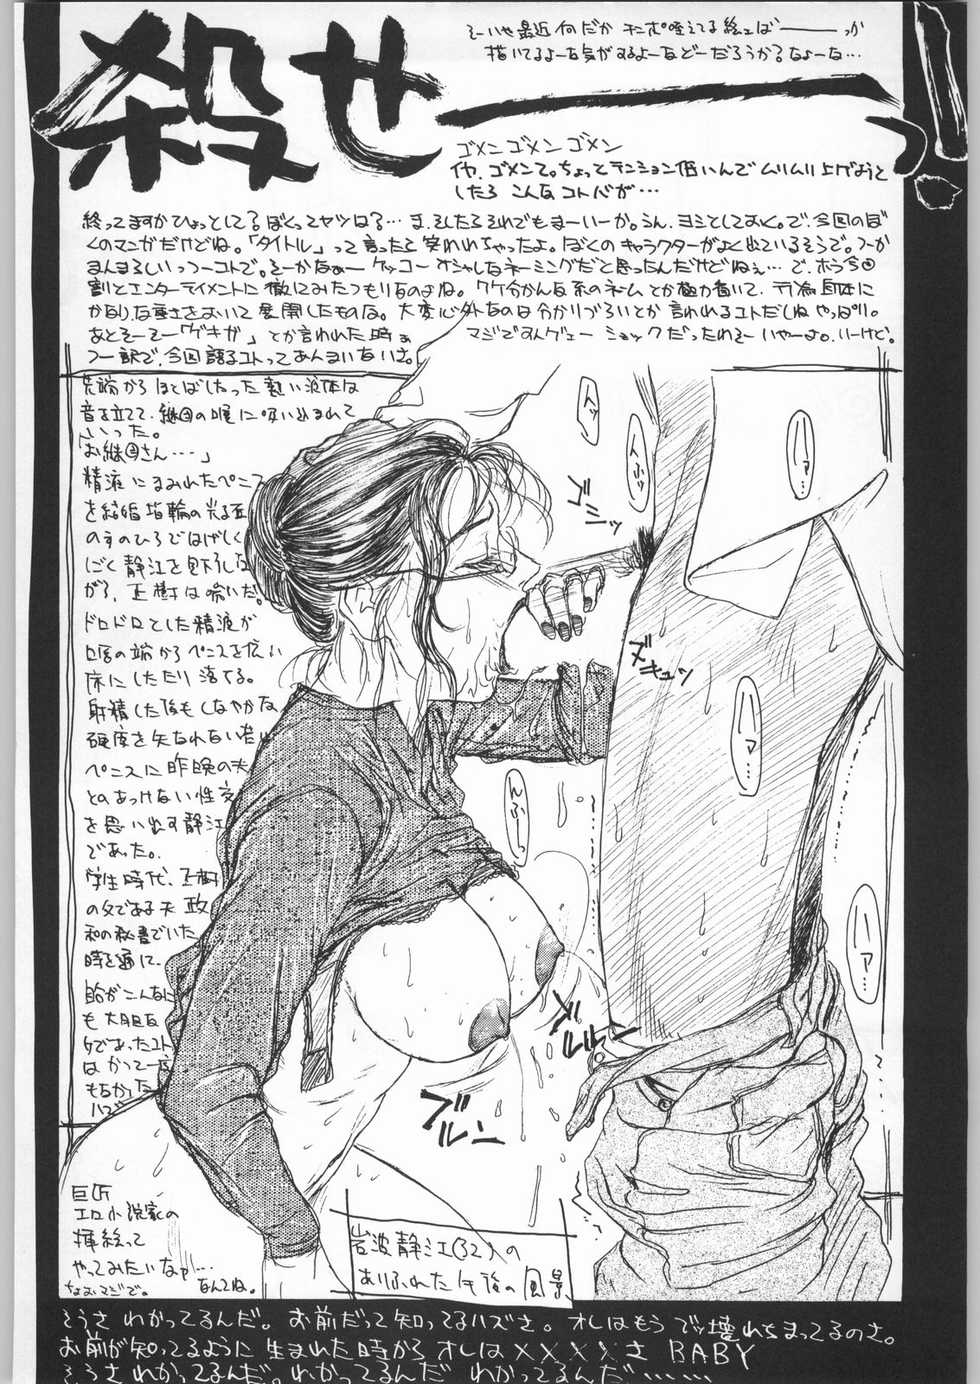 殺せーーっ!
そーいや最近何だかチンポ咥えてる絵ェばーーーっか
描いてるよーな気がするよーなどーだろうか?なよーな…
ゴメンゴメンゴメン
イヤ、ゴメンて。ちょっとテンション低いんでムリムリ上げようと
したら こんなコトバが…
終ってますかひょっとして?ぼくってヤツは?… ま、そしたらそれでもまーいーか。うん、ヨシとしておく。で、今回のぼ
くのマンガだけどね。「タイトル」って言ったら笑われちゃったよ。ぼくのキャラクターがよく出ているそうで。つーか
まんまらしいっつーコトで。そーかなぁー ケッコーオシャレなネーミングだと思ったんだけどねェ… で、ホラ今回
割とエンターテイメントに徹してみたつもりなのよね。ワケ分かんな系のネームとか極力省いて、行為自体に
かなりな重きをおいて展開したものな。大変心外なのは分かりづらいとか言われるコトだしねやっぱり。
あとそーそー「ゲキガ」とか言われた時ぁ マジですんげェー ショックだったわそーいやーよ。いーけど。
つー訳で、今回語るコトってあんまいないさ。
先端からほとばしった熱い液体は
音を立てて、継母の喉に吸い込まれて
いった。
「お継母さん‥‥」
精液にまみれたペニス
を結婚指輪の光る
手のひらではげしく
しごく静江を見下ろしな
がら、正樹は喘いだ。
ドロドロとした精液が
口唇の端からペニスを伝い
床にしたたり落てる。
射精した後もしなやかな
硬度を失なわない若い
ペニスに昨晩の夫
とのあっけない性交
を思い出す静江
であった。
学生時代、正樹
の父である夫政
和の秘書でいた
時を通じ、
自分がこんなに
も大胆な
ケであったコト
はかって一度
もなかった
ハズ
ンッ
んふッ
ハァ…
ゴシッ
ズキュン
ハァ…
んふ…
ハァ…
ブルルン
ブルン
巨匠
エロ小説家の
挿絵って
やってみたいなァ!…
ちょおマジで。
なんてね。
岩波静江(32)の
ありふれた午後の風景
そうさ わかってるんだ。 お前だって知ってるハズさ。 オレはもう ブッ壊れちまってるのさ。
お前が知ってるように 生まれた時から オレは××××さ BABY
そうさわかってるんだ。わかってるんだ わかってるんだ……